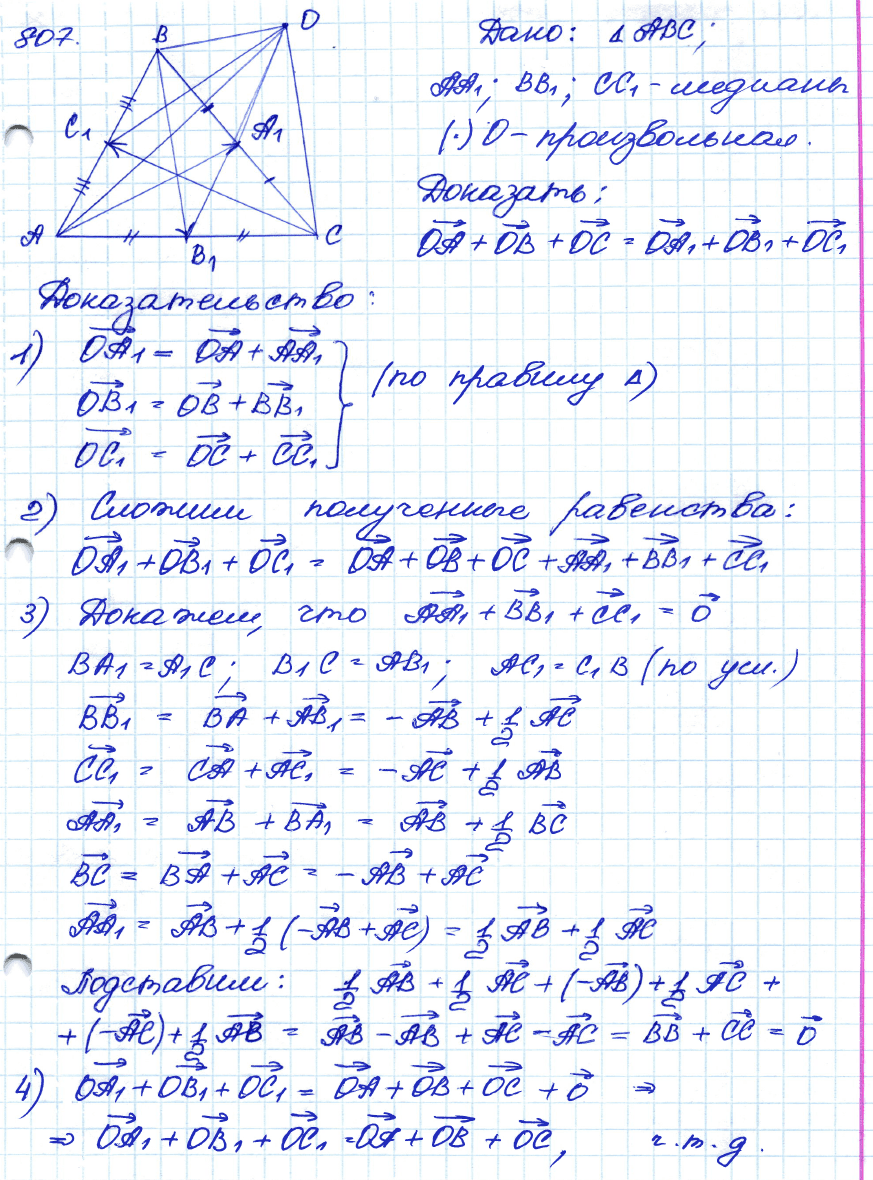 807.
B
O
C₁
A₁
A
B₁
C
Дано: Δ ABC;
AA₁; BB₁; CC₁ - медианы
(·) O - произвольная.
Доказать:
OA→ + OB→ + OC→ = OA₁→ + OB₁→ + OC₁→
Доказательство:
1) OA₁→ = OA→ + AA₁→
OB₁→ = OB→ + BB₁→
OC₁→ = OC→ + CC₁→
} (по правилу Δ)
2) Сложим полученные равенства:
OA₁→ + OB₁→ + OC₁→ = OA→ + OB→ + OC→ + AA₁→ + BB₁→ + CC₁→
3) Докажем, что AA₁→ + BB₁→ + CC₁→ = 0→
BA₁ = A₁C; B₁C = AB₁; AC₁ = C₁B (по усл.)
BB₁→ = BA→ + AB₁→ = - AB→ + 1/2 AC→
CC₁→ = CA→ + AC₁→ = - AC→ + 1/2 AB→
AA₁→ = AB→ + BA₁→ = AB→ + 1/2 BC→
BC→ = BA→ + AC→ = - AB→ + AC→
AA₁→ = AB→ + 1/2 (-AB→ + AC→) = 1/2 AB→ + 1/2 AC→
Подставим: 1/2 AB→ + 1/2 AC→ + (-AB→) + 1/2 AC→ +
+ (-AC→) + 1/2 AB→ = AB→ - AB→ + AC→ - AC→ = BB→ + CC→ = 0→
4) OA₁→ + OB₁→ + OC₁→ = OA→ + OB→ + OC→ + 0→ ⇒
⇒ OA₁→ + OB₁→ + OC₁→ = OA→ + OB→ + OC→, ч.т.д.